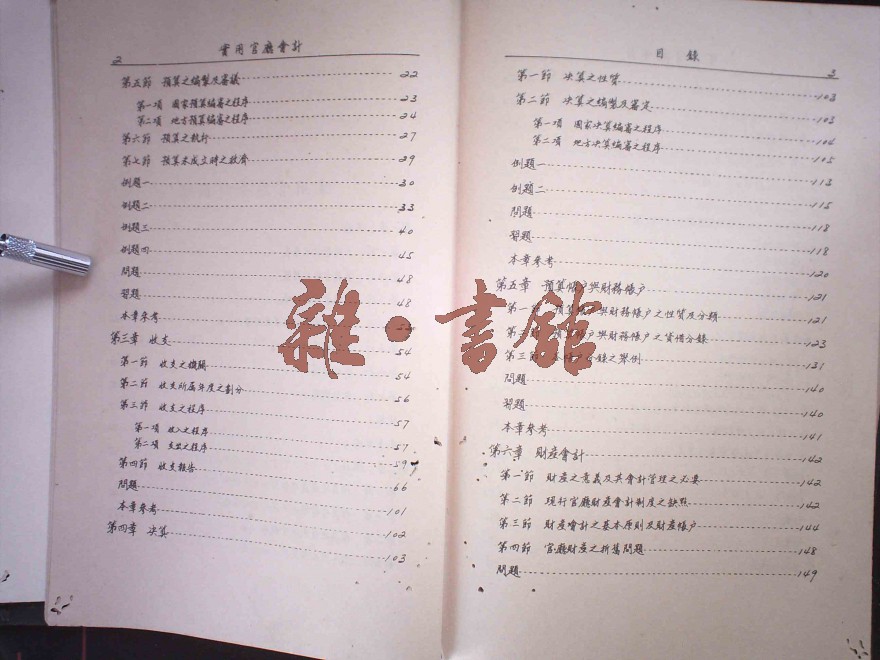 實用官廳會計
2
第五節 預算之編製及審議 22
第一項 國家預算編審之程序 23
第二項 地方預算編審之程序 24
第六節 預算之執行 27
第七節 預算未成立時之救濟 29
例題一 30
例題二 33
例題三 40
例題四 45
問題 48
習題 48
本章參考
第三章 收支 54
第一節 收支之機關 54
第二節 收支所屬年度之劃分 56
第三節 收支之程序 57
第一項 收入之程序 57
第二項 支出之程序 59
第四節 收支報告 66
問題 101
本章參考 102
第四章 決算 103
目錄
3
第一節 決算之性質 103
第二節 決算之編製及審定 103
第一項 國家決算編審之程序 104
第二項 地方決算編審之程序 105
例題一 113
例題二 115
問題 118
習題 118
本章參考 120
第五章 預算帳户與財務帳户 121
第一節 預算帳户與財務帳户之性質及分類 121
第二節 户與財務帳户之貸借分錄 123
第三節 分錄之舉例 131
問題 140
習題 140
本章參考 141
第六章 財產會計 142
第一節 財產之意義及其會計管理之必要 142
第二節 現行官廳財產會計制度之缺點 142
第三節 財產會計之基本原則及財產帳户 144
第四節 官廳財產之折舊問題 148
問題 149
雜·書館